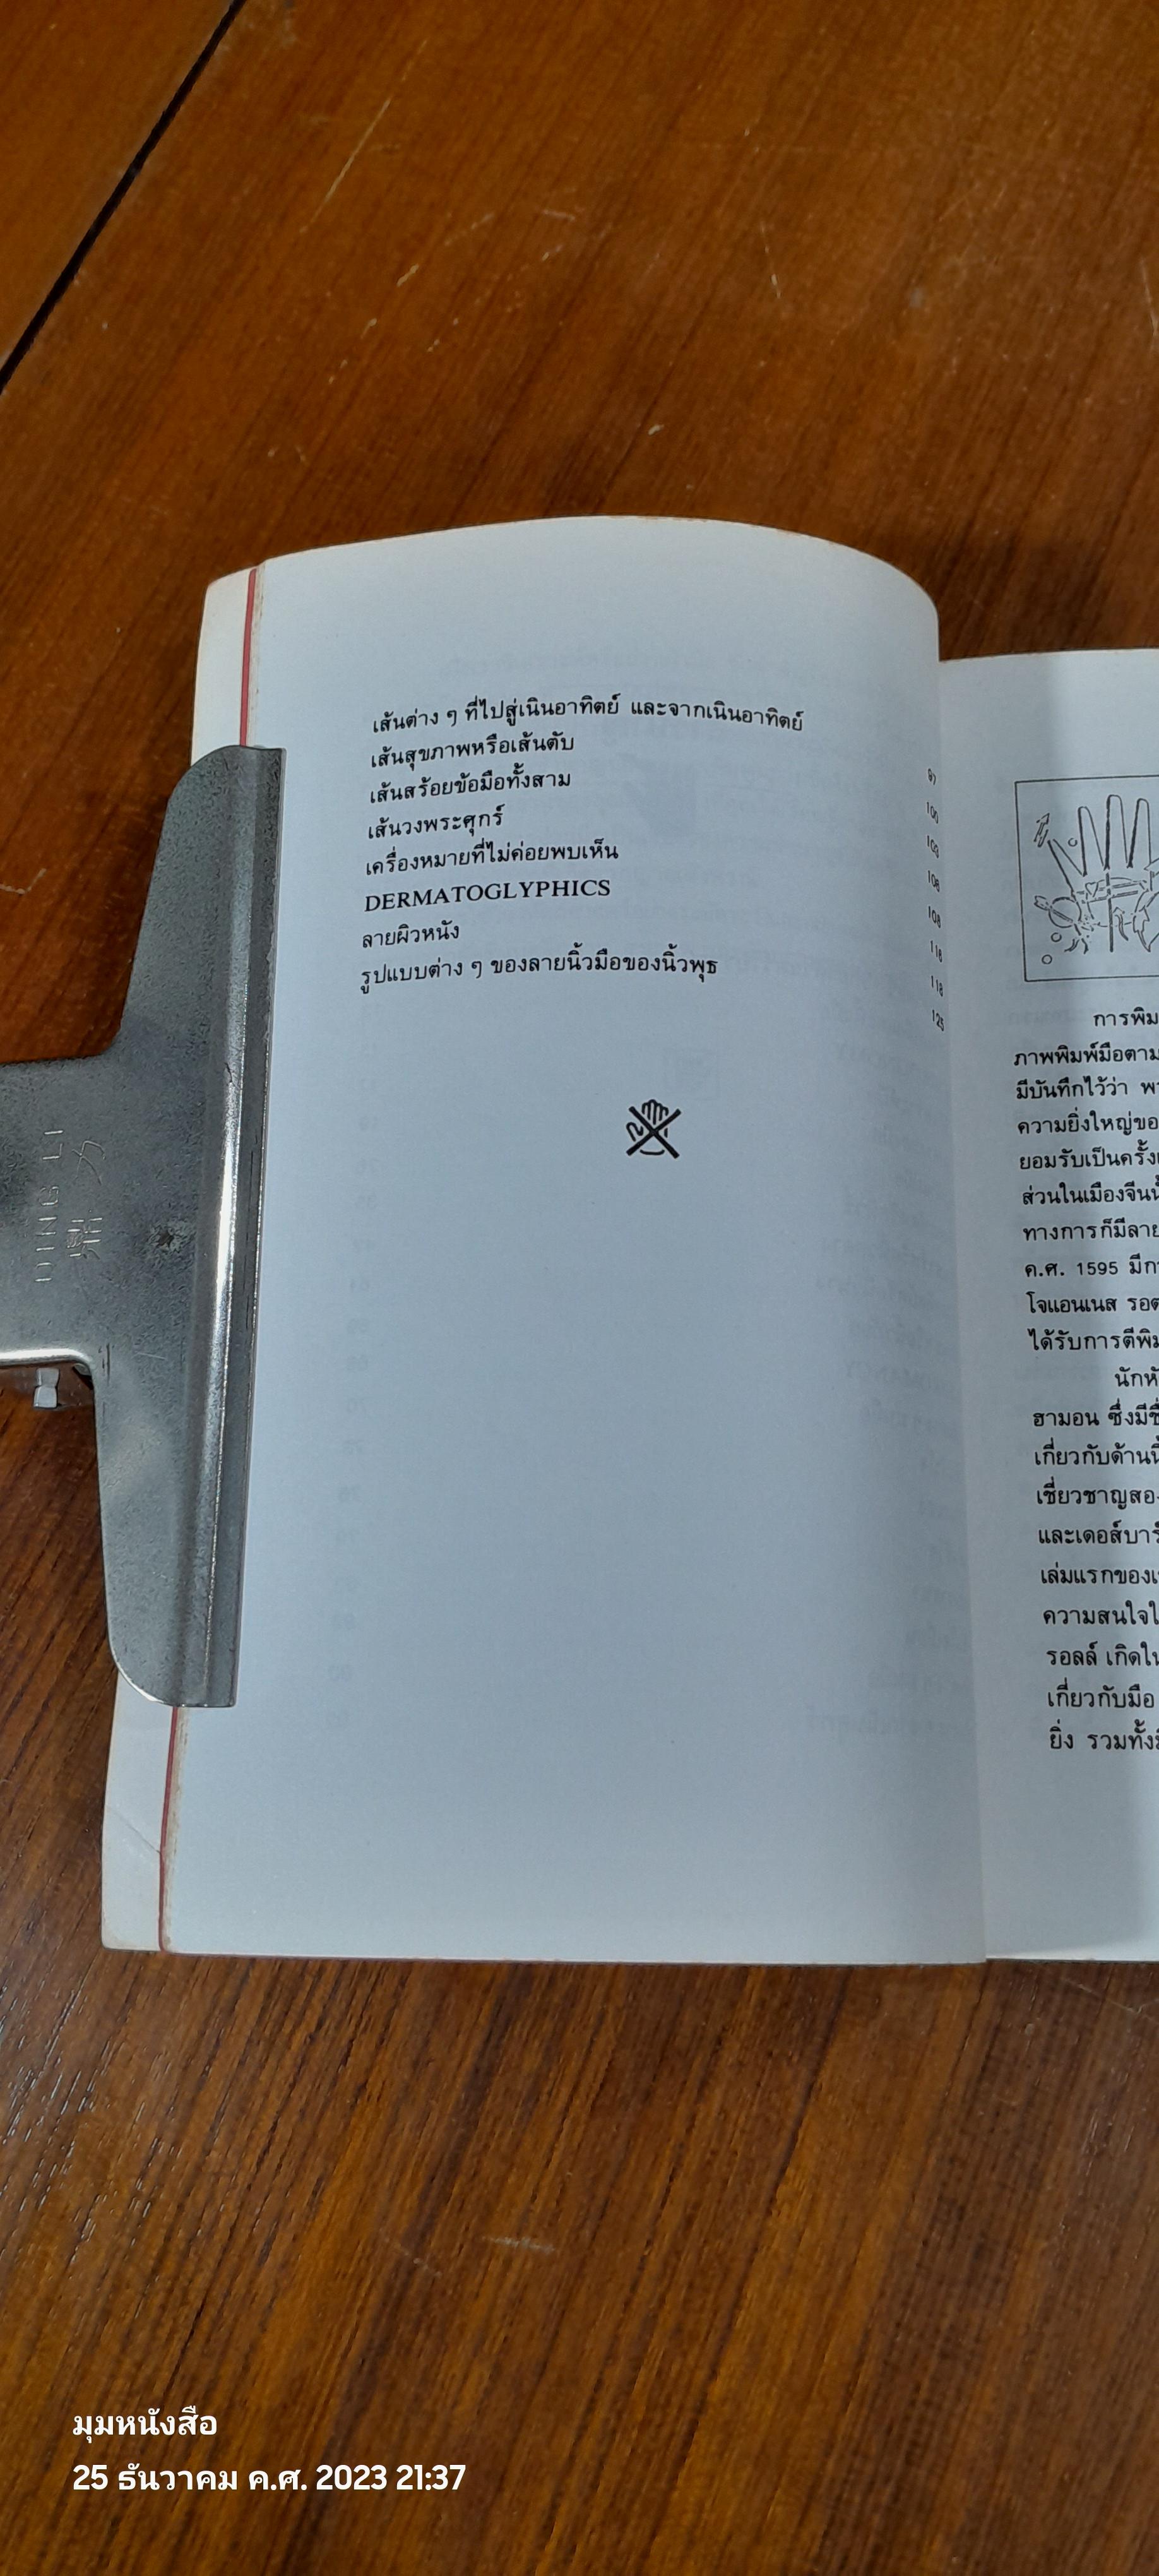 เส้นต่าง ๆ ที่ไปสู่เนินอาทิตย์ และจากเนินอาทิตย์ 97
เส้นสุขภาพหรือเส้นตับ 100
เส้นสร้อยข้อมือทั้งสาม 103
เส้นวงพระศุกร์ 106
เครื่องหมายที่ไม่ค่อยพบเห็น 108
DERMATOGLYPHICS 116
ลายผิวหนัง 118
รูปแบบต่าง ๆ ของลายนิ้วมือของนิ้วพุธ 125
การพิม
ภาพพิมพ์มือตาม
มีบันทึกไว้ว่า
ความยิ่งใหญ่ขอ
ยอมรับเป็นครั้ง
ส่วนในเมืองจีน
ทางการก็มีลาย
ค.ศ. 1595 มี
โจแอนเนส รอ
ได้รับการตีพิม
นัก
ฮามอน ซึ่งมี
เกี่ยวกับด้าน
เชี่ยวชาญสอง
และเดอส์บาร์
เล่มแรกของ
ความสนใจ
รอลล์ เกิดใน
เกี่ยวกับมือ
ยิ่ง รวมทั้ง
DING LI
鼎力
มุมหนังสือ
25 ธันวาคม ค.ศ. 2023 21:37